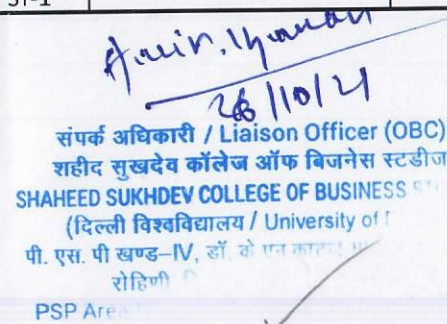 ST-1
26/10/21
संपर्क अधिकारी / Liaison Officer (OBC)
शहीद सुखदेव कॉलेज ऑफ बिजनेस स्टडीज
SHAHEED SUKHDEV COLLEGE OF BUSINESS
(दिल्ली विश्वविद्यालय / University of
पी. एस. पी खण्ड–IV, डॉ. के एन काटजू
रोहिणी
PSP Are